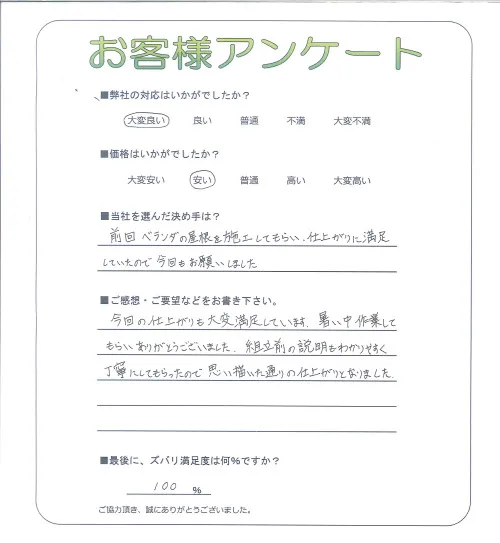 お客様アンケート
■弊社の対応はいかがでしたか？
大変良い 良い 普通 不満 大変不満
■価格はいかがでしたか？
大変安い 安い 普通 高い 大変高い
■当社を選んだ決め手は？
前回 ベランダの屋根を施工してもらい、仕上がりに満足
していたので 今回もお願いしました
■ご感想・ご要望などをお書き下さい。
今回の仕上がりも大変満足しています。暑い中作業して
もらいありがとうございました。組立前の説明もわかりやすく
丁寧にしてもらったので 思い描いた通りの仕上がりとなりました。
■最後に、ズバリ満足度は何％ですか？
100 ％
ご協力頂き、誠にありがとうございました。